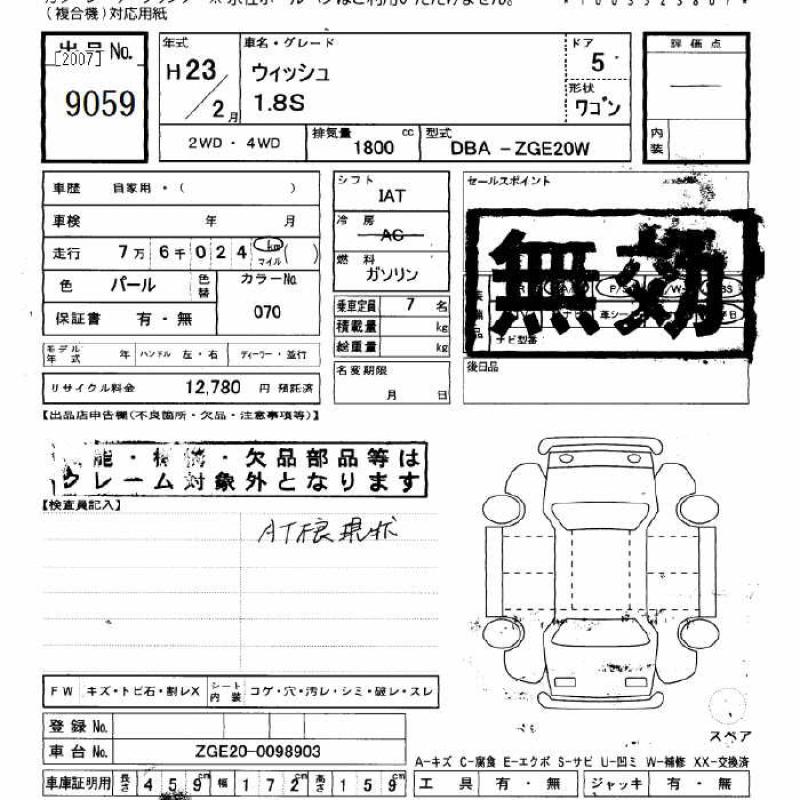 (複合機)対応用紙
出品 No.
[2007]
9059
年式
H 23 / 2 月
車名・グレード
ウィッシュ
1.8S
ドア
5
形状
ワゴン
2WD ・ 4WD
排気量 1800 cc
型式 DBA －ZGE20W
評価点
内装
車歴 自家用・( )
車検 年 月
走行 7万 6千 0 2 4 km マイル ( )
色 パール 色替
カラーNo.
070
保証書 有・無
モデル年式 年 ハンドル 左・右 ディーラー・並行
リサイクル料金 12,780 円 預託済
シフト
IAT
冷房
AC
燃料
ガソリン
乗車定員 7 名
積載量 kg
総重量 kg
名変期限
月 日
セールスポイント
無効
ナビ型番
後日品
【出品店申告欄(不良箇所・欠品・注意事項等)】
能・機構・欠品部品等は
クレーム対象外となります
【検査員記入】
FW キズ・トビ石・割レX シート内装 コゲ・穴・汚レ・シミ・破レ・スレ
登録 No.
車台 No. ZGE20-0098903
車庫証明用 長さ 459 cm 幅 172 cm 高さ 159 cm
スペア
A-キズ C-腐食 E-エクボ S-サビ U-凹ミ W-補修 XX-交換済
工具 有・無 ジャッキ 有・無